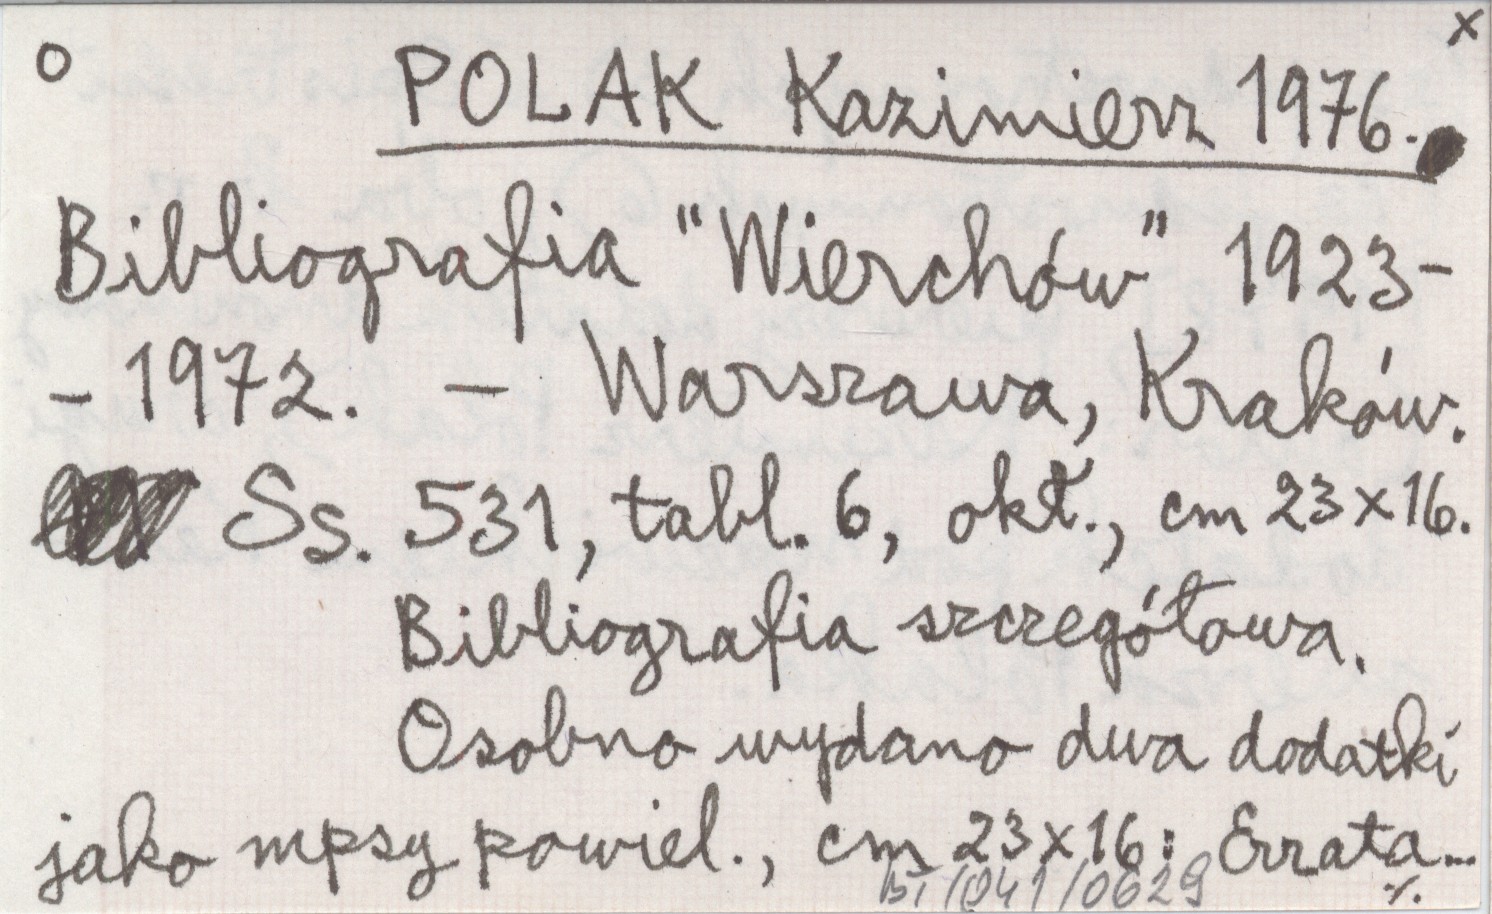 o x
POLAK Kazimierz 1976.
Bibliografia "Wierchów" 1923-
- 1972. — Warszawa, Kraków.
Ss. 531, tabl. 6, okł., cm 23x16.
Bibliografia szczegółowa.
Osobno wydano dwa dodatki
jako mpsy powiel., cm 23x16: Errata...
BI/041/0629 ·/.